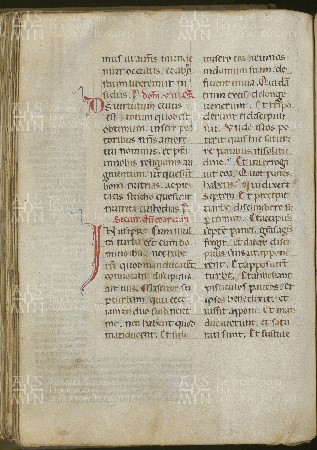 mus ut a
mur occultis. et
Ds uirtutum cuius
est totum quod est
optimum. insere pec
toribus nris amore
tui nominis. et pre
ta in nobis religionis au
gmentum. ut que sunt
bona nutrias. ac pie
tatis studio que sunt
nutrita custodias.
In illo tpr. Cum mul
ta turba esset cum
nec habe
rent quod manducarent
conuocatis discipulis
ait illis. Misereor su
per turbam. quia ecce
iam triduo sustinent
me. nec habent quod
manducent. Et si di
misero eos ieiunos
in domum suam. de
ficient in uia. Quidam
enim ex eis de longe
uenerunt. Et respon
derunt ei discipuli
sui. Unde istos po
terit quis hic satura
re panibus in solitu
dine. Et interrogauit
eos. Quot panes
habetis. Qui dixerunt
septem. Et precepit
turbe discumbere su
per terram. Et accipiens
septe panes. gratias agens
fregit. et dabat disci
pulis suis ut appone
rent. Et apposuerunt
turbe. Et habebant
pisciculos paucos. et
ipsos benedixit. et
iussit apponi. Et man
ducauerunt. et satu
rati sunt. Et sustule